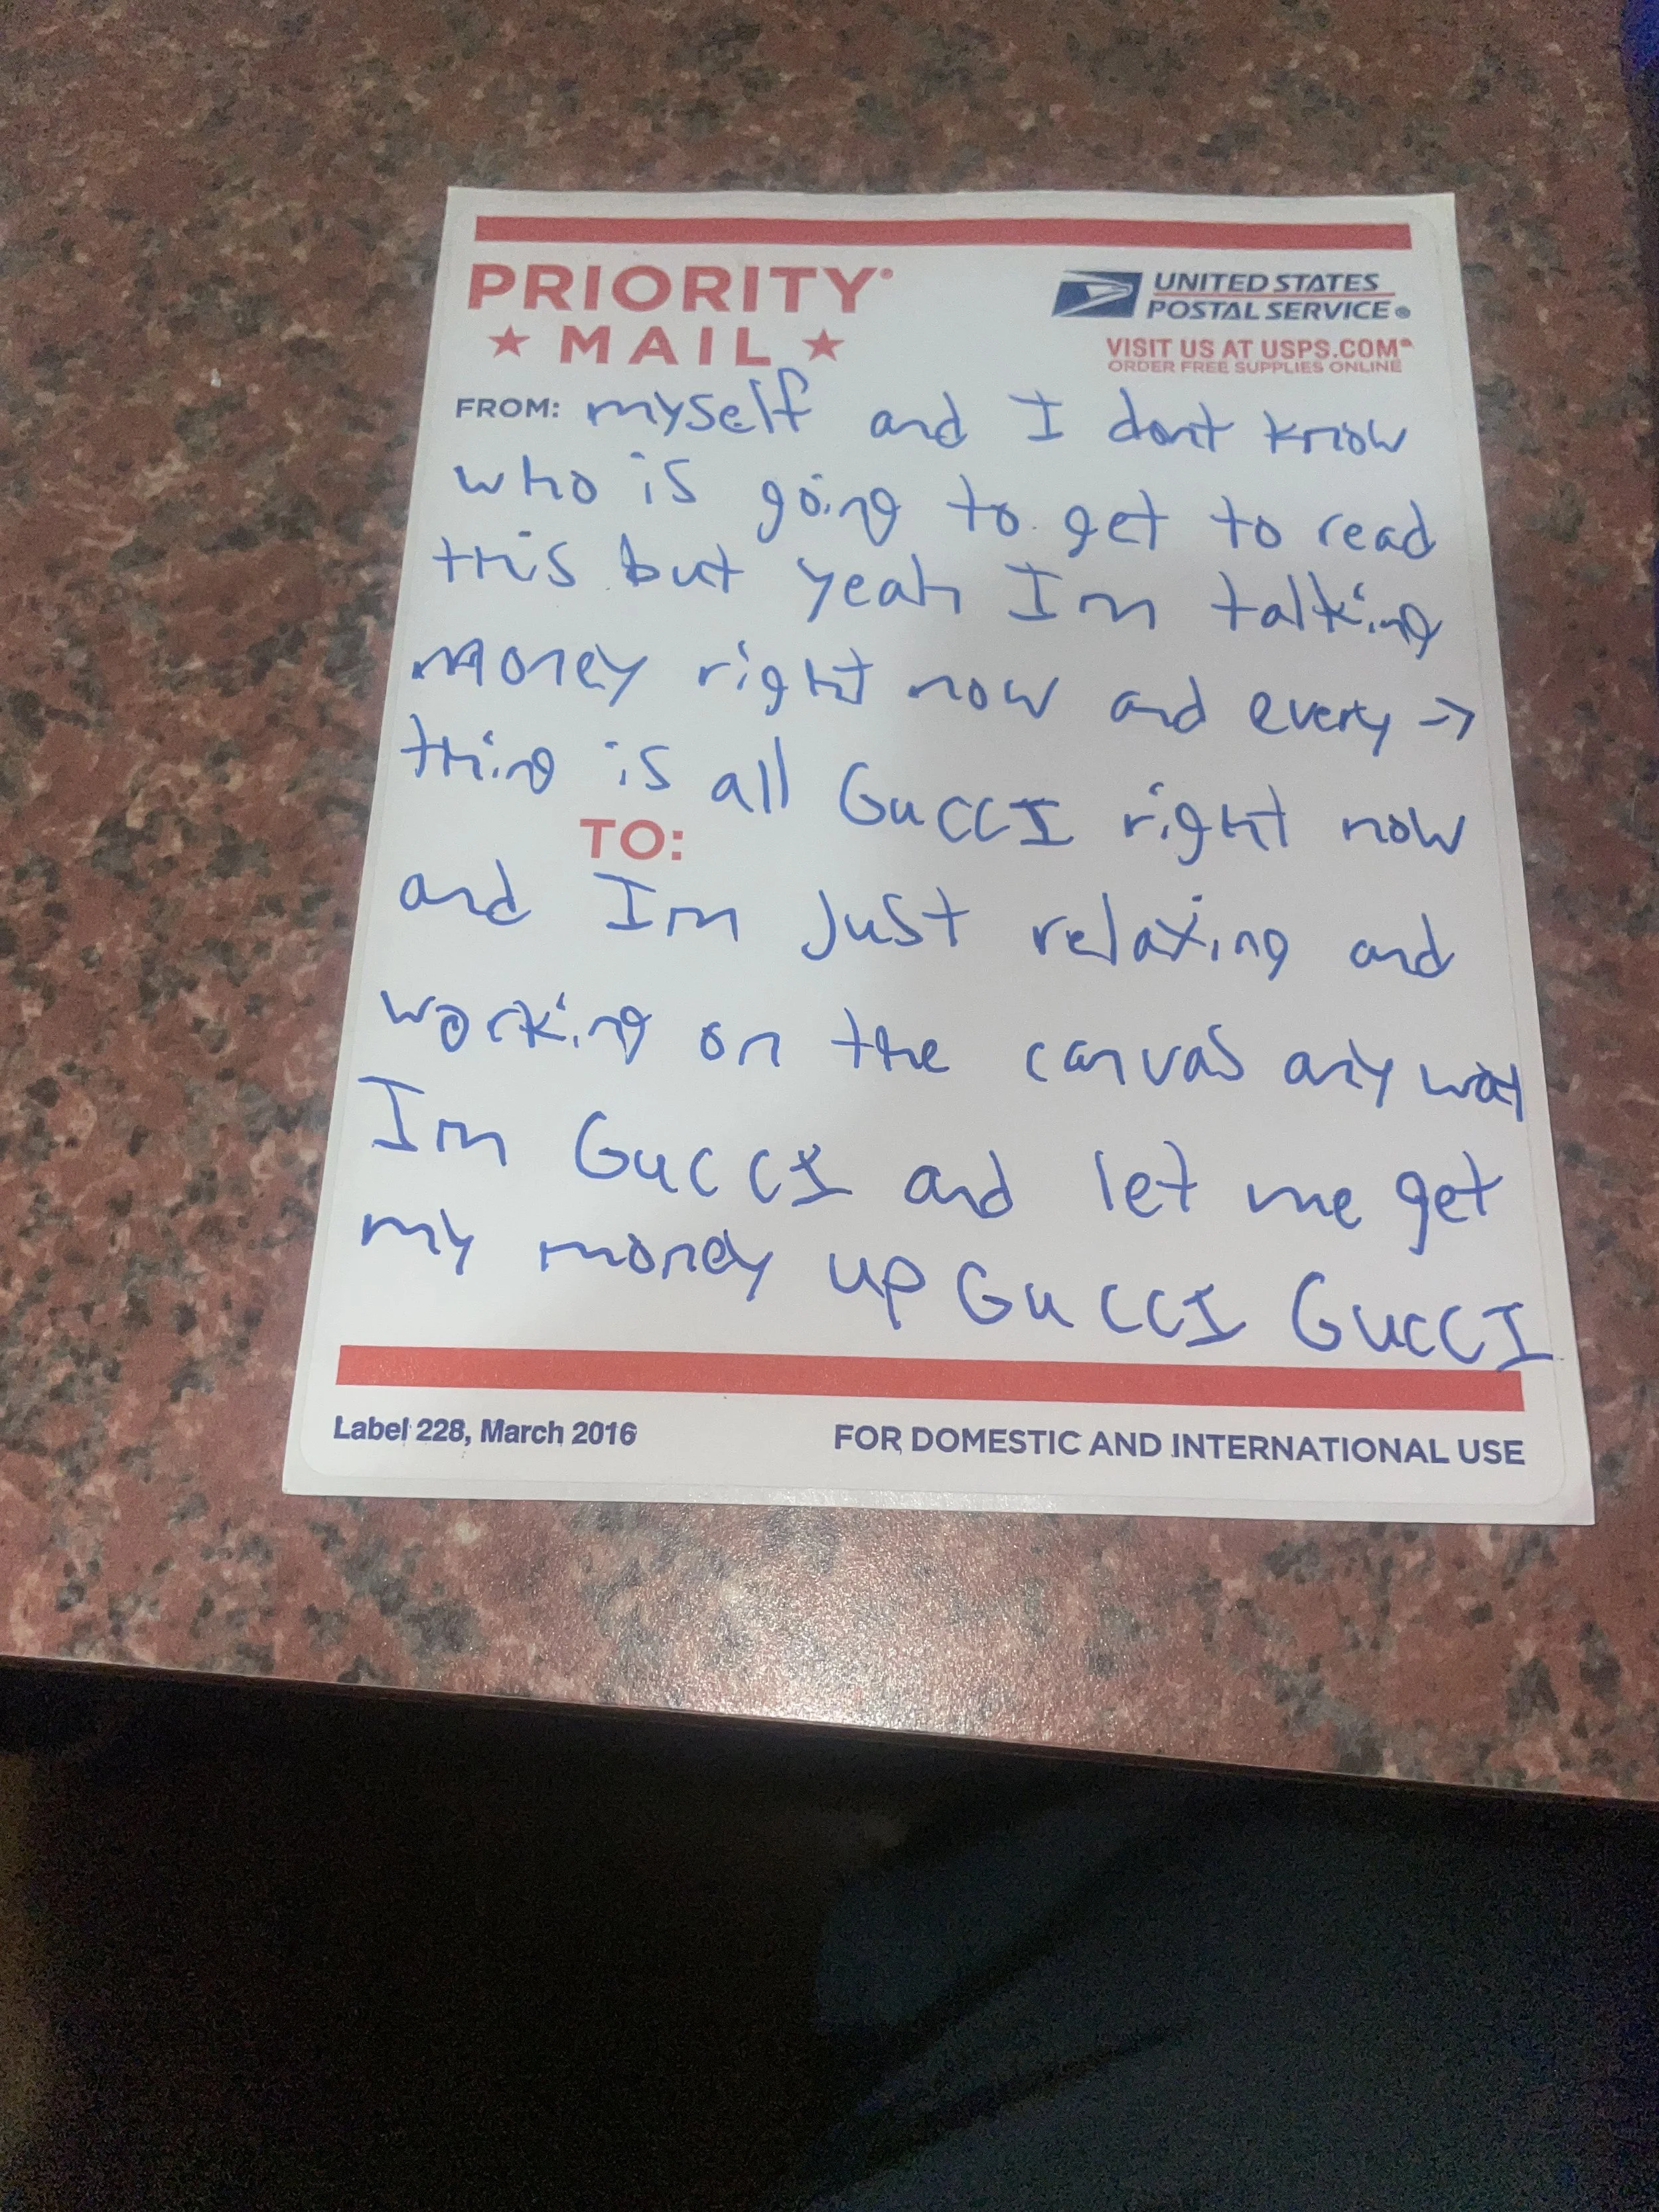 PRIORITY
★ MAIL ★
UNITED STATES
POSTAL SERVICE®
VISIT US AT USPS.COM®
ORDER FREE SUPPLIES ONLINE
FROM: myself and I dont know
who is going to get to read
this but yeah Im talking
money right now and every →
thing is all GuCCI right now
TO:
and Im just relaxing and
working on the canvas any way
Im GuCCI and let me get
my money up GuCCI GuCCI
Label 228, March 2016
FOR DOMESTIC AND INTERNATIONAL USE